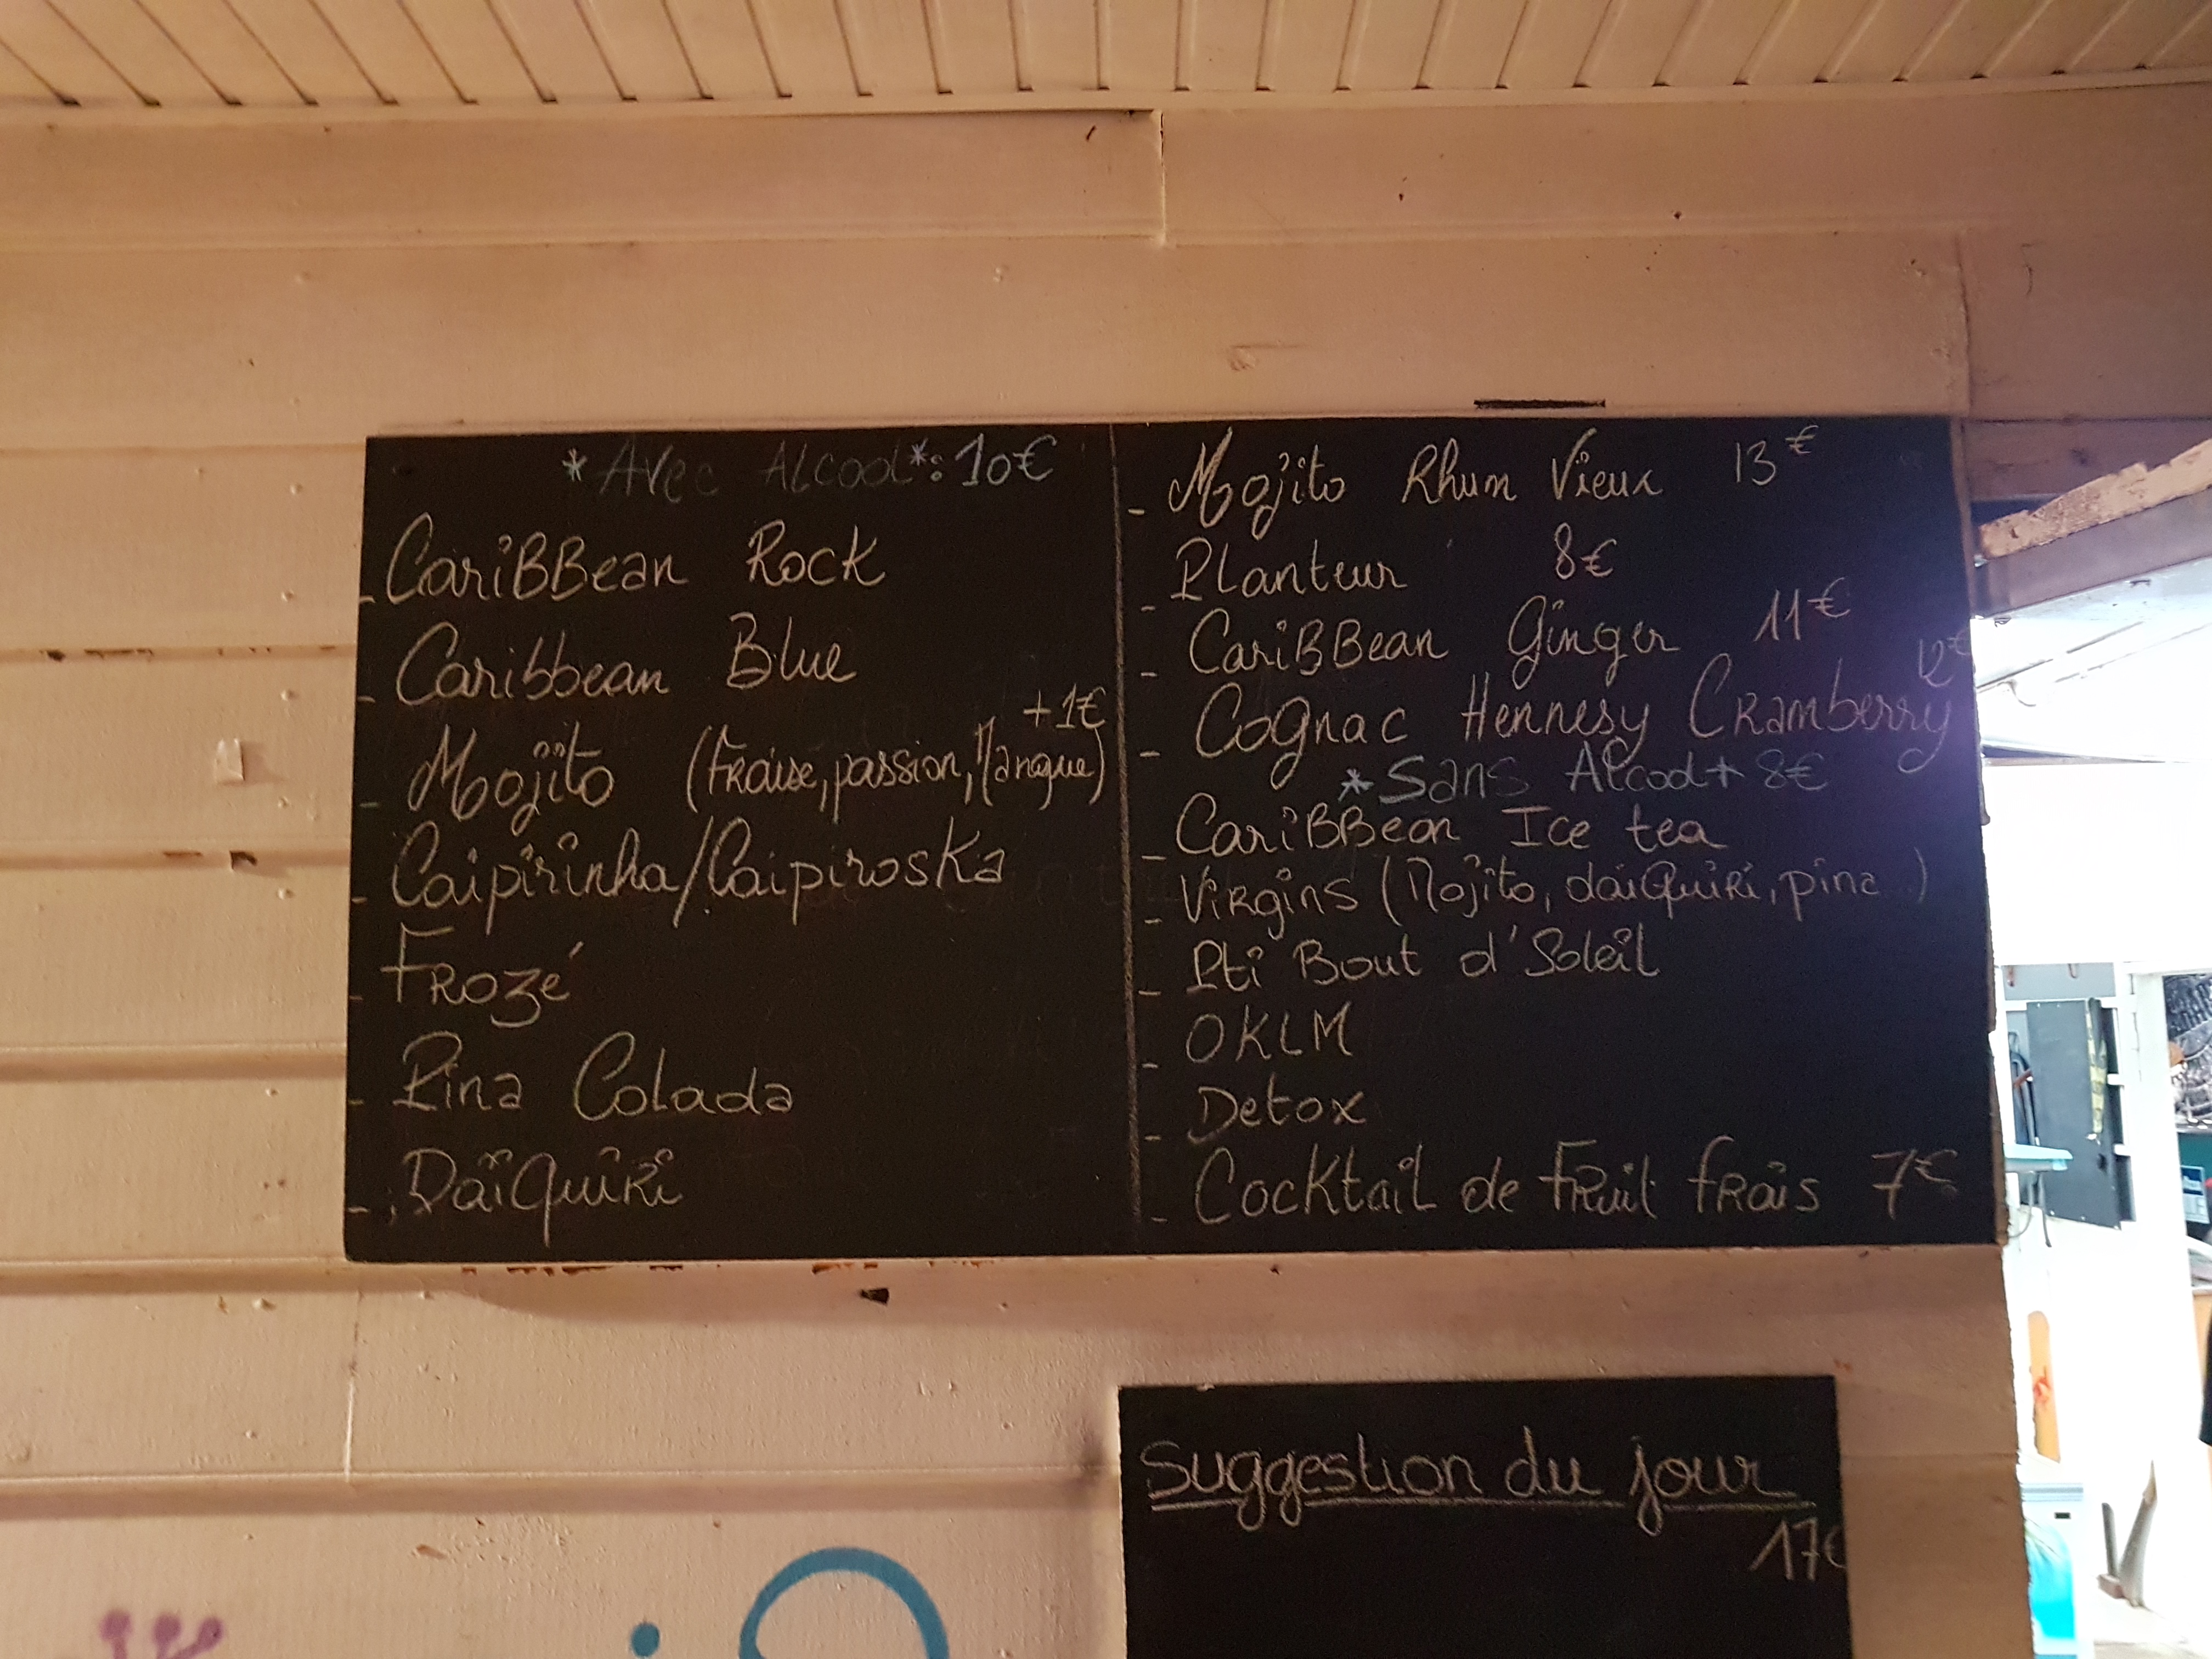 *Avec Alcool*: 10€
- CariBBean Rock
- Caribbean Blue
+1€
- Mojito (Fraise, passion, Mangue)
- Caipirinha/Caipiroska
- Frozé
- Pina Colada
- Daïquiri
- Mojito Rhum Vieux 13€
- Planteur 8€
- CariBBean Ginger 11€
12€
- Cognac Hennesy Cramberry
*Sans Alcool* 8€
- CariBBean Ice tea
- Virgins (Mojito, daïquiri, pina..)
- Pti Bout d'Soleil
- OKLM
- Detox
- Cocktail de Fruit frais 7€
Suggestion du jour
17€